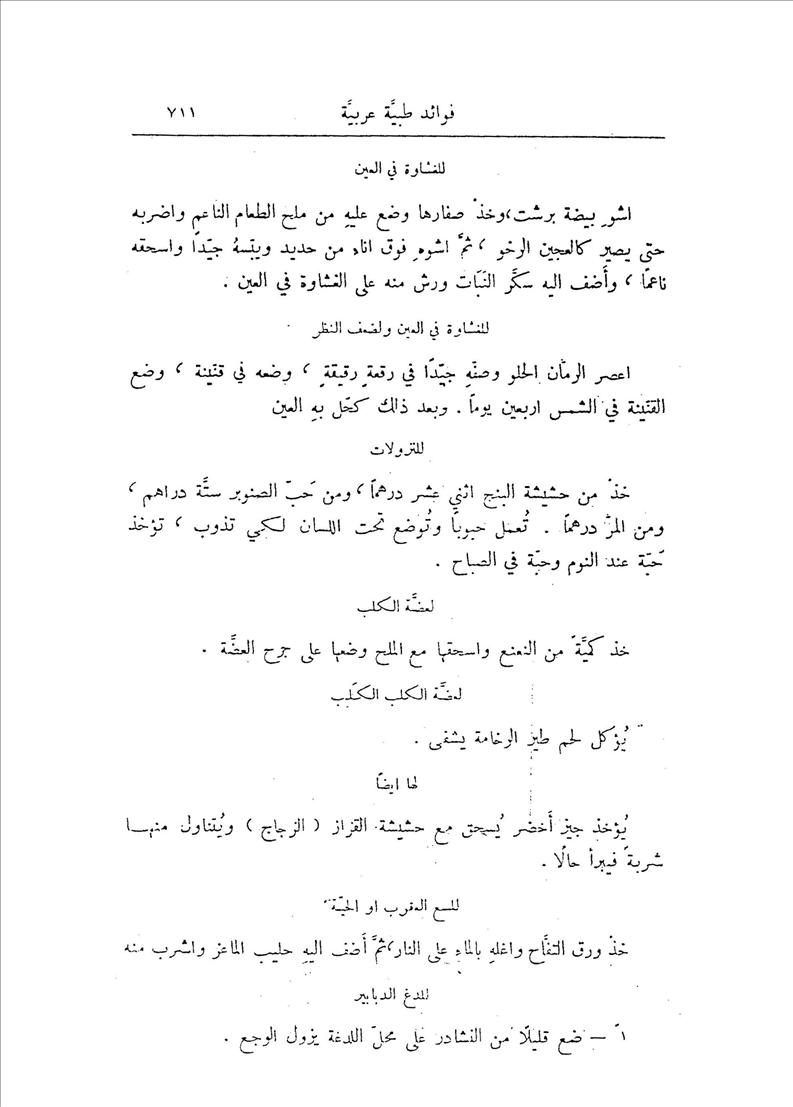 فوائد طبيَّة عربيَّة ٧١١
للغشاوة في العين
اشوِ بيضة برشت، وخذْ صفارها وضع عليهِ من ملح الطعام الناعم واضربه
حتى يصير كالعجين الرخو، ثمَّ اشوهِ فوق اناءٍ من حديد ويبّسهُ جيّداً واسحقه
ناعماً، وأَضف اليه سكَّر النَبَات ورش منه على الغشاوة في العين.
للغشاوة في العين ولضعف النظر
اعصر الرمَّان الحلو وصفّهِ جيّدًا في رقعةٍ رقيقةٍ، وضعه في قنّينة، وضع
القنّينة في الشمس اربعين يوماً. وبعد ذالك كحّل بهِ العين
للنزولات
خذْ من حشيشة البنج اثني عشر درهماً، ومن حَبّ الصنوبر ستَّة دراهم،
ومن المرّ درهماً. تُعمل حبوباً وتُوضع تحت اللسان لكي تذوب، تؤخذ
حَبّة عند النوم وحبّة في الصباح.
لعضَّة الكلب
خذ كمّيَّةً من النعنع واسحقها مع الملح وضعها على جرح العضَّة.
لعضَّة الكلب الكَلِب
يُؤكل لحم طير الرخامة يشفى.
لها ايضاً
يُؤخذ جيز أَخضر يُسحق مع حشيشة القزاز (الزجاج) ويُتناول منها
شربةً فيبرأ حالًا.
للسع العقرب او الحيّة
خذْ ورق التفَّاح واغلهِ بالماءِ على النار، ثمَّ أَضف اليهِ حليب الماعز واشرب منه
للدغ الدبابير
١ً – ضع قليلًا من النشادر على محلّ اللدغة يزول الوجع.